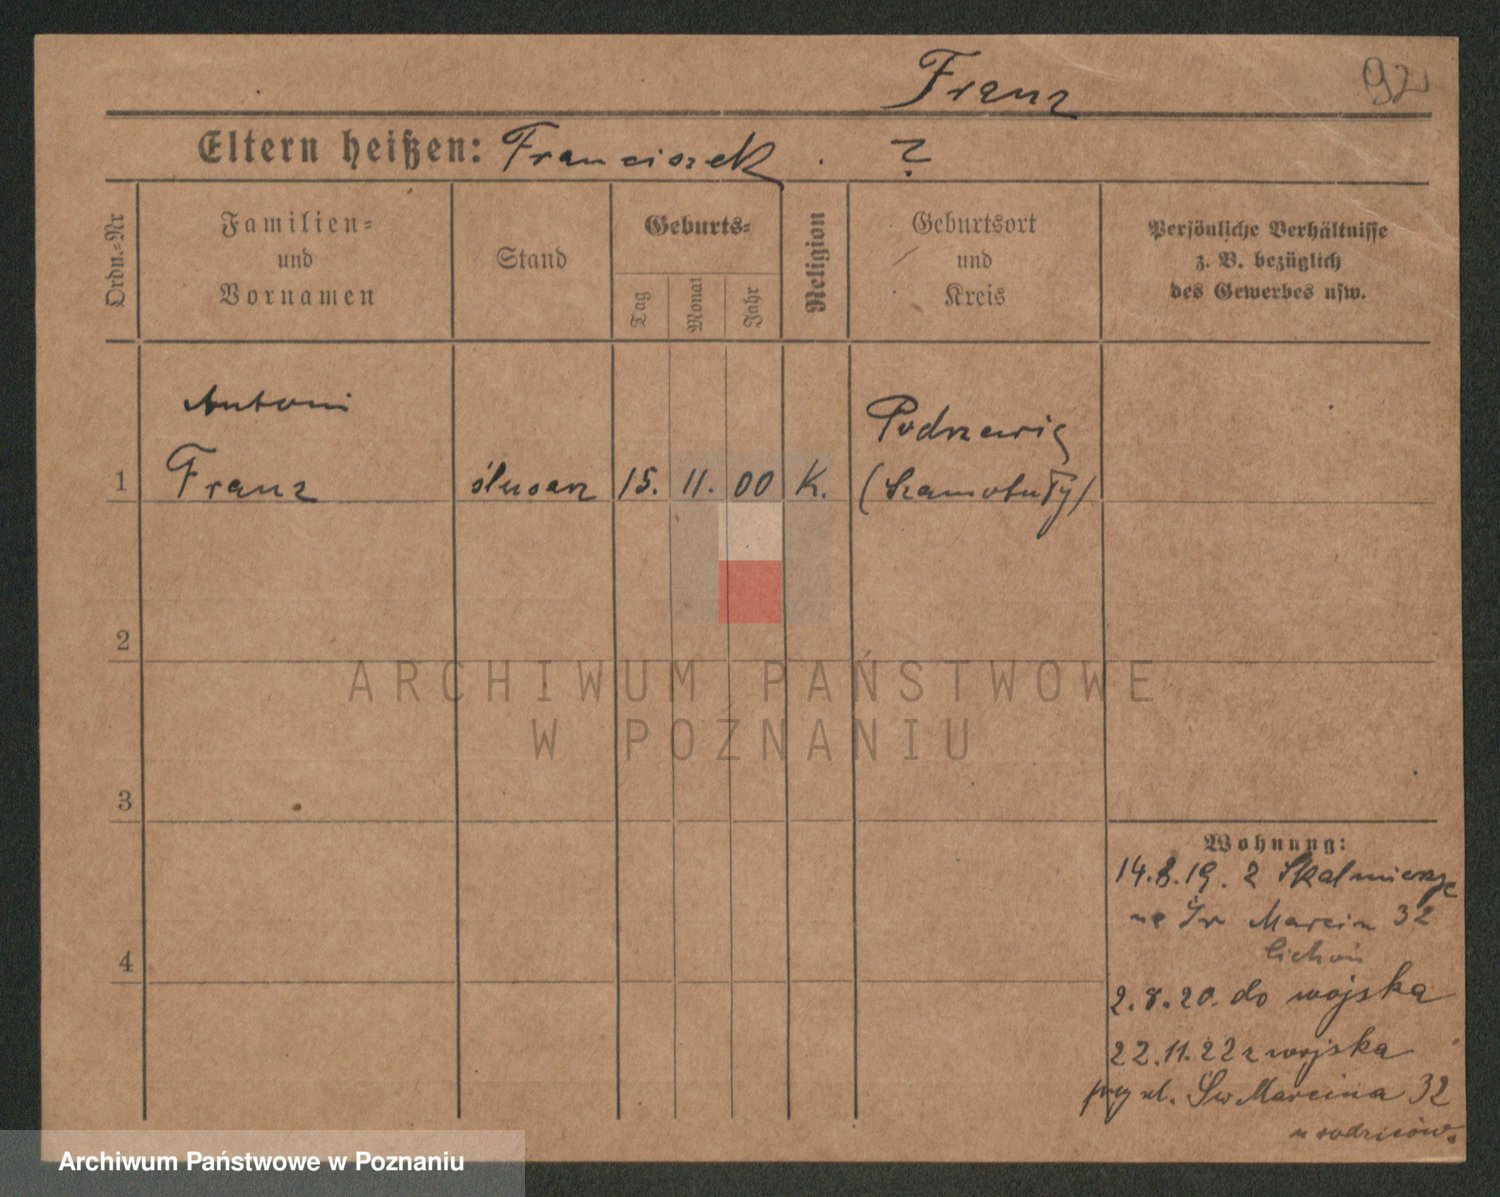 Franz
92
Eltern heißen: Franciszek . ?
Ordn.-Nr
Familien-
und
Vornamen
Stand
Geburts-
Tag
Monat
Jahr
Religion
Geburtsort
und
Kreis
Persönliche Verhältnisse
z. B. bezüglich
des Gewerbes usw.
Antoni
1 Franz ślusarz 15. 11. 00 K.
Podrzewie
(Szamotuły)
2
3
4
ARCHIWUM PAŃSTWOWE
W POZNANIU
Wohnung:
14.8.19. z Skalmierzyc
na Św Marcin 32
Cichoń
2.8.20. do wojska
22.11.22 z wojska
przy ul. Św Marcina 32
u rodziców.
Archiwum Państwowe w Poznaniu